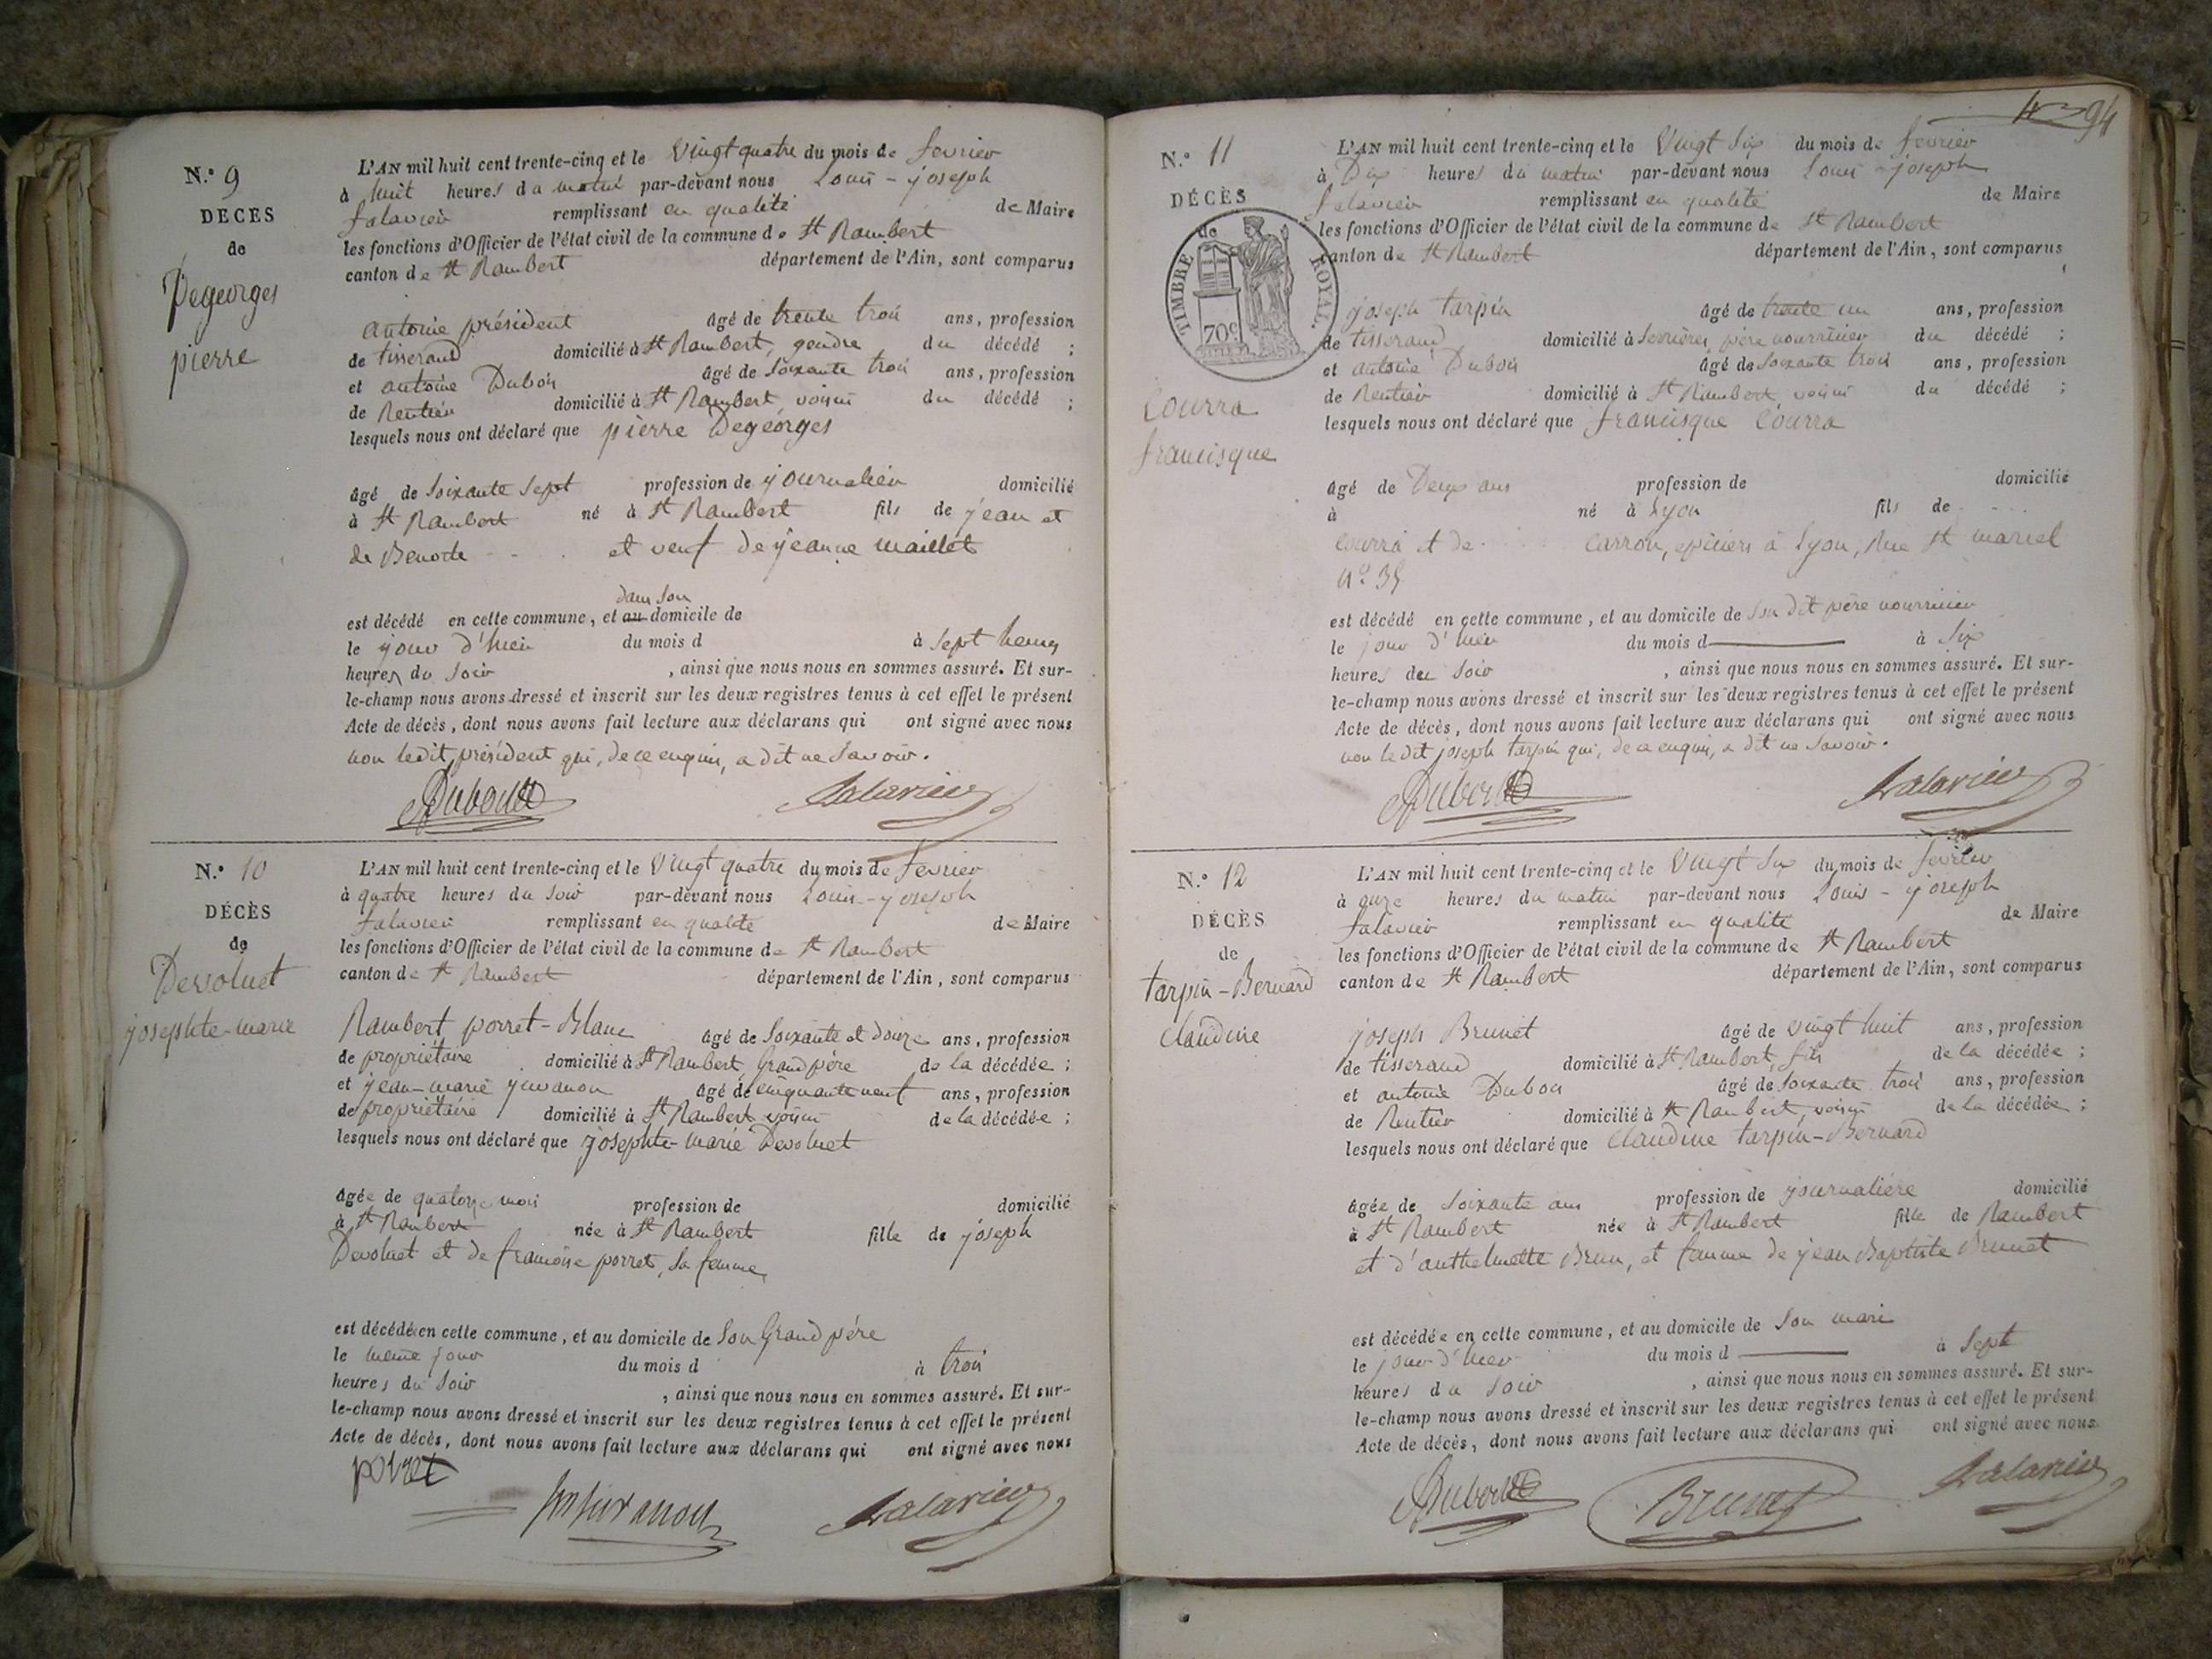 N.º 9
DÉCES
de
Degeorges
pierre
L'AN mil huit cent trente-cinq et le Vingt quatre du mois de fevrier
à huit heures du matin par-devant nous Louis - joseph
Salavier remplissant en qualité de Maire
les fonctions d'Officier de l'état civil de la commune de St Rambert
canton de St Rambert département de l'Ain, sont comparus
antoine président âgé de trente trois ans, profession
de tisserand domicilié à St Rambert, gendre du décédé ;
et antoine Dubois âgé de Soixante trois ans, profession
de Rentier domicilié à St Rambert, voisin du décédé ;
lesquels nous ont déclaré que pierre Degeorges
âgé de Soixante Sept profession de journalier domicilié
à St Rambert né à St Rambert fils de jean et
de Benoite et veuf de jeanne Maillet
dans son
est décédé en cette commune, et au domicile de
le jour d'hier du mois d à Sept heures
heures du Soir , ainsi que nous nous en sommes assuré. Et sur-
le-champ nous avons dressé et inscrit sur les deux registres tenus à cet effet le présent
Acte de décès, dont nous avons fait lecture aux déclarans qui ont signé avec nous
non ledit président qui, de ce enquis, a dit ne Savoir.
Dubois Salavier
N.º 10
DÉCÈS
de
Devoluet
josephte-marie
L'AN mil huit cent trente-cinq et le Vingt quatre du mois de fevrier
à quatre heures du Soir par-devant nous Louis - joseph
Salavier remplissant en qualité de Maire
les fonctions d'Officier de l'état civil de la commune de St Rambert
canton de St Rambert département de l'Ain, sont comparus
Rambert porret-Blanc âgé de Soixante et douze ans, profession
de propriétaire domicilié à St Rambert, Grand père de la décédée ;
et jean-marie juvanon âgé de cinquante neuf ans, profession
de propriétaire domicilié à St Rambert voisin de la décédée ;
lesquels nous ont déclaré que josephte-marie Devoluet
âgée de quatorze mois profession de domicilié
à St Rambert née à St Rambert fille de joseph
Devoluet et de françoise porret, Sa femme,
est décédée en cette commune, et au domicile de Son Grand père
le même jour du mois d à trois
heures du Soir , ainsi que nous nous en sommes assuré. Et sur-
le-champ nous avons dressé et inscrit sur les deux registres tenus à cet effet le présent
Acte de décès, dont nous avons fait lecture aux déclarans qui ont signé avec nous
porret
juvanon Salavier
94
N.º 11
DÉCÈS
de
TIMBRE ROYAL.
70c
Courra
francisque
L'AN mil huit cent trente-cinq et le Vingt Six du mois de fevrier
à Dix heures du matin par-devant nous Louis - joseph
Salavier remplissant en qualité de Maire
les fonctions d'Officier de l'état civil de la commune de St Rambert
canton de St Rambert département de l'Ain, sont comparus
joseph tarpin âgé de trente un ans, profession
de tisserand domicilié à Serrières, père nourricier du décédé ;
et antoine Dubois âgé de Soixante trois ans, profession
de Rentier domicilié à St Rambert, voisin du décédé ;
lesquels nous ont déclaré que francisque Courra
âgé de Deux ans profession de domicilié
à né à Lyon fils de
Courra et de Carron, epiciers à Lyon, Rue St marcel
nº 35
est décédé en cette commune, et au domicile de Son dit père nourricier
le jour d'hier du mois d à Six
heures du Soir , ainsi que nous nous en sommes assuré. Et sur-
le-champ nous avons dressé et inscrit sur les deux registres tenus à cet effet le présent
Acte de décès, dont nous avons fait lecture aux déclarans qui ont signé avec nous
non le dit joseph tarpin qui, de ce enquis, a dit ne Savoir.
Dubois Salavier
N.º 12
DÉCÈS
de
tarpin-Bernard
Claudine
L'AN mil huit cent trente-cinq et le Vingt Six du mois de fevrier
à onze heures du matin par-devant nous Louis - joseph
Salavier remplissant en qualité de Maire
les fonctions d'Officier de l'état civil de la commune de St Rambert
canton de St Rambert département de l'Ain, sont comparus
joseph Brunet âgé de vingt huit ans, profession
de tisserand domicilié à St Rambert, fils de la décédée ;
et antoine Dubois âgé de Soixante trois ans, profession
de Rentier domicilié à St Rambert, voisin de la décédée ;
lesquels nous ont déclaré que Claudine tarpin-Bernard
âgée de Soixante ans profession de journalière domicilié
à St Rambert née à St Rambert fille de Rambert
et d'anthelmette Brun, et femme de jean Baptiste Brunet
est décédée en cette commune, et au domicile de Son mari
le jour d'hier du mois d à Sept
heures du Soir , ainsi que nous nous en sommes assuré. Et sur-
le-champ nous avons dressé et inscrit sur les deux registres tenus à cet effet le présent
Acte de décès, dont nous avons fait lecture aux déclarans qui ont signé avec nous.
Dubois Brunet Salavier